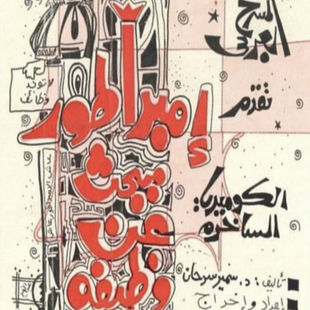 المسرح
العربي
تقدم
إمبراطور
يبحث
عن
وظيفة
الكوميديا
الساخرة
تأليف: د. سمير سرحان
إعداد وإخراج
لا توجد
وظائف